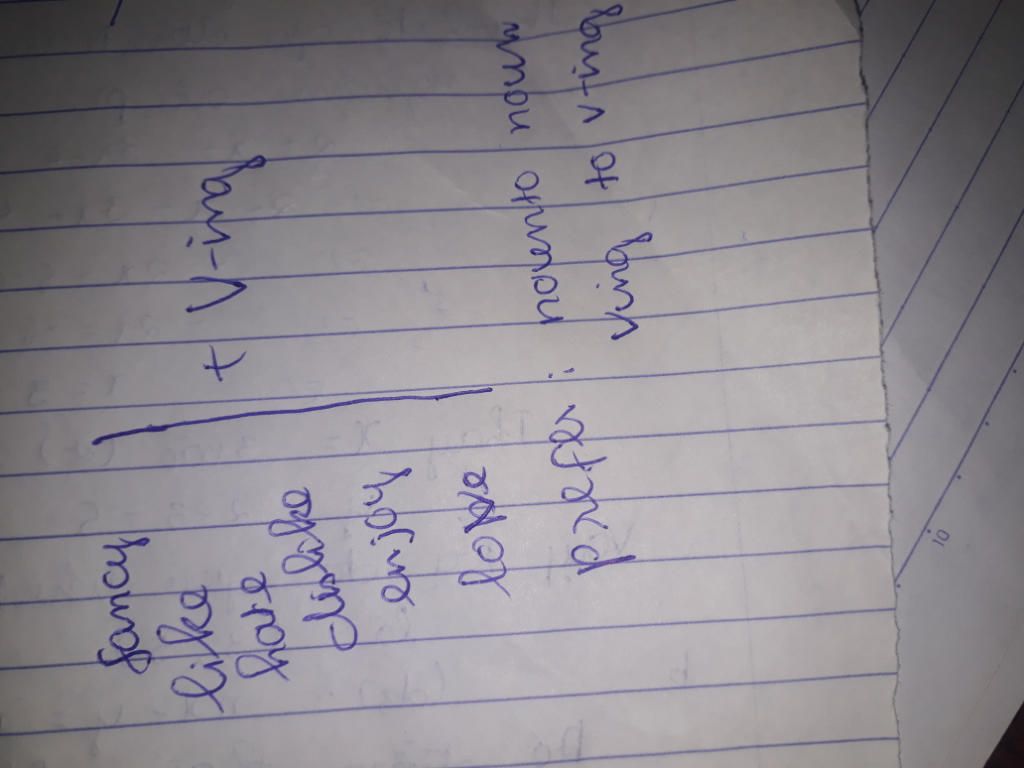 fancy
like + V-ing
hate
dislike
enjoy
love
prefer : noun to noun
ving to v-ing